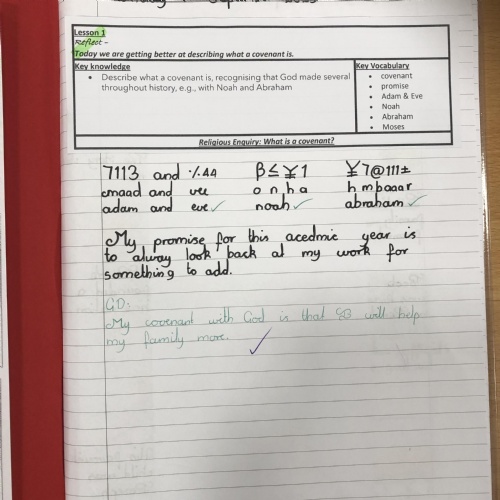 Lesson 1
Reflect -
Today we are getting better at describing what a covenant is.
Key knowledge
Key Vocabulary
• Describe what a covenant is, recognising that God made several
throughout history, e.g., with Noah and Abraham
• covenant
• promise
• Adam & Eve
• Noah
• Abraham
• Moses
Religious Enquiry: What is a covenant?
7113 and ٪.44 β≤¥1 ¥7@111±
amaad and vee onha hmbaaar
adam and eve ✓ noah ✓ abraham ✓
My promise for this acedmic year is
to alway look back at my work for
something to add.
GD:
My covenant with God is that will help
my family more. ✓